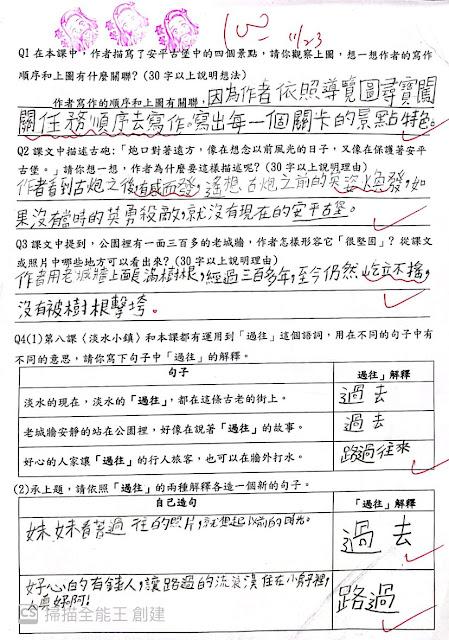 100 11/23
Q1 在本課中，作者描寫了安平古堡中的四個景點，請你觀察上圖，想一想作者的寫作
順序和上圖有什麼關聯？(30 字以上說明想法)
作者寫作的順序和上圖有關聯，因為作者依照導覽圖尋寶闖
關任務順序去寫作。寫出每一個關卡的景點特色。
Q2 課文中描述古砲：「炮口對著遠方，像在想念以前風光的日子，又像在保護著安平
古堡。」請你想一想，作者為什麼要這樣描述呢？(30 字以上說明理由)
作者看到古炮之後有感而發，遙想古炮之前的英姿煥發，如
果沒有當時的英勇殺敵，就沒有現在的安平古堡。
Q3 課文中提到，公園裡有一面三百多的老城牆，作者怎樣形容它「很堅固」？從課文
或照片中哪些地方可以看出來？(30 字以上說明理由)
作者用老城牆上面長滿樹根，經過三百多年，至今仍然屹立不搖，
沒有被樹根擊垮。
Q4(1)第八課〈淡水小鎮〉和本課都有運用到「過往」這個語詞，用在不同的句子中有
不同的意思，請你寫下句子中「過往」的解釋。
句子 「過往」解釋
淡水的現在，淡水的「過往」，都在這條古老的街上。 過去
老城牆安靜的站在公園裡，好像在說著「過往」的故事。 過去
好心的人家讓「過往」的行人旅客，也可以在牆外打水。 路過往來
(2)承上題，請依照「過往」的兩種解釋各造一個新的句子。
自己造句 「過往」解釋
妹妹看著過往的照片，就想起以前的時光。 過去
好心的有錢人，讓路過的流浪漢住在小房子裡，
人真好阿！ 路過
CS 掃描全能王 創建